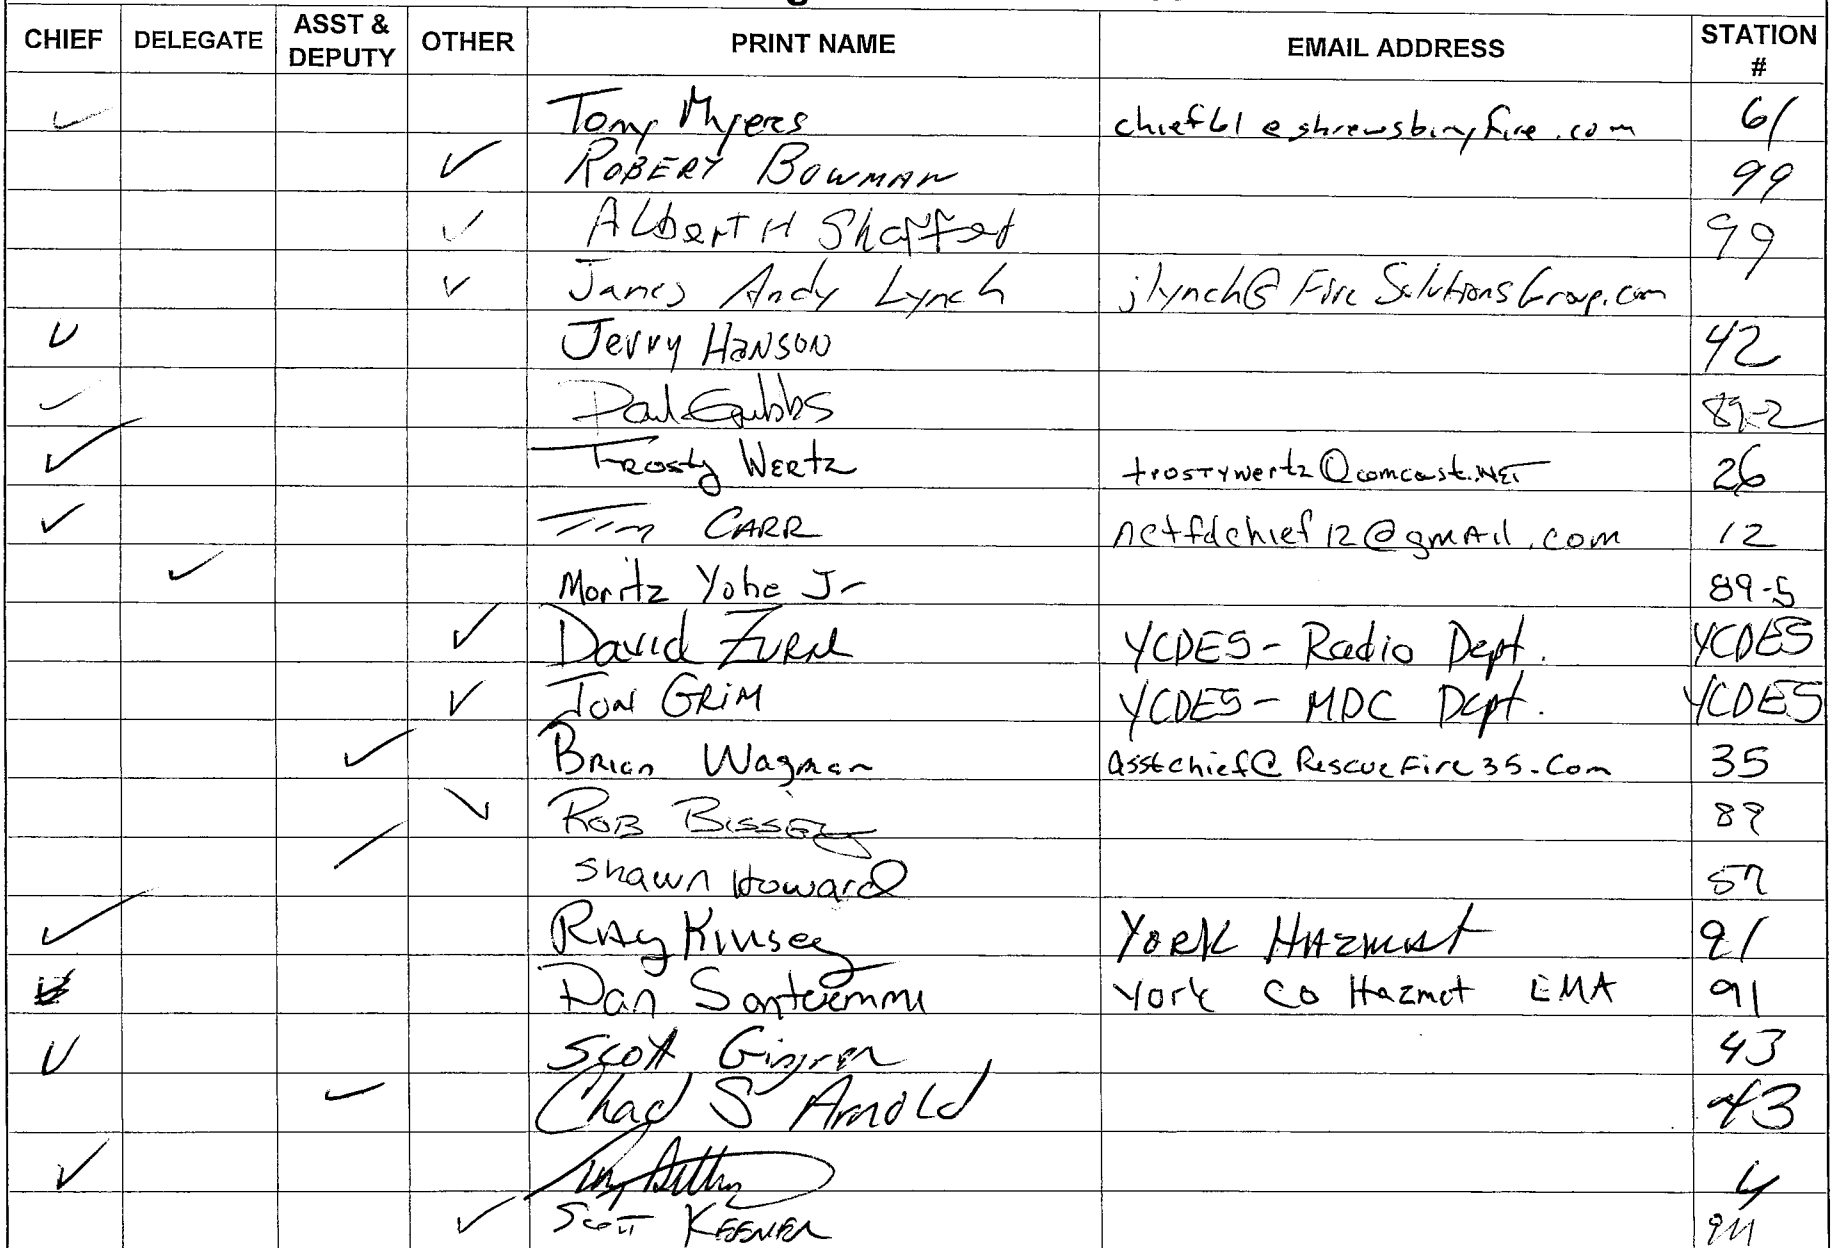 CHIEF DELEGATE ASST & DEPUTY OTHER PRINT NAME EMAIL ADDRESS STATION #
✓ Tony Myers chief61@shrewsburyfire.com 61
✓ ROBERT BOWMAN 99
✓ Albert H Shaffer 99
✓ James Andy Lynch jlynch@FireSolutionsGroup.com
✓ Jerry Hanson 42
✓ Paul Gibbs 89-2
✓ Trosty Wertz trostywertz@comcast.NET 26
✓ Tim CARR nctfdchief12@gmail.com 12
✓ Moritz Yohe Jr 89-5
✓ David Zurn YCDES - Radio Dept. YCDES
✓ Jon GRIM YCDES - MDC Dept. YCDES
✓ Brian Wagman asstchief@RescueFire35.Com 35
✓ ROB 89
Shawn Howard 57
✓ Ray Kinsey York Hazmat 91
✓ Dan York Co Hazmat EMA 91
✓ Scott 43
✓ Chad S Arnold 43
✓ 4
✓ Scott KEENER